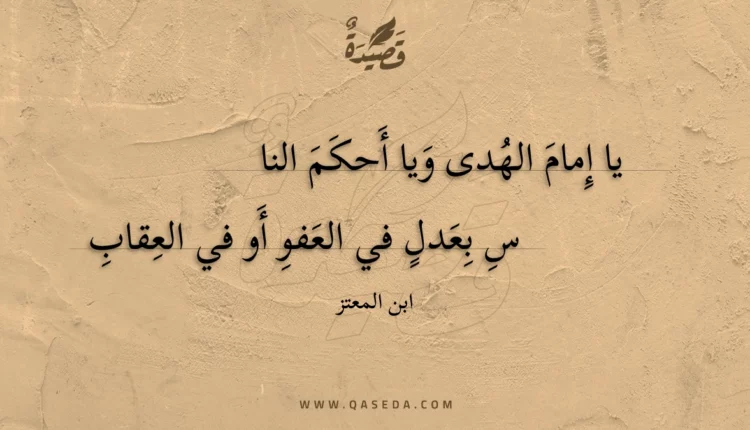 قَصِيدَةٌ
يا إِمامَ الهُدى وَيا أَحكَمَ النا
سِ بِعَدلٍ في العَفوِ أَو في العِقابِ
ابن المعتز
WWW.QASEDA.COM